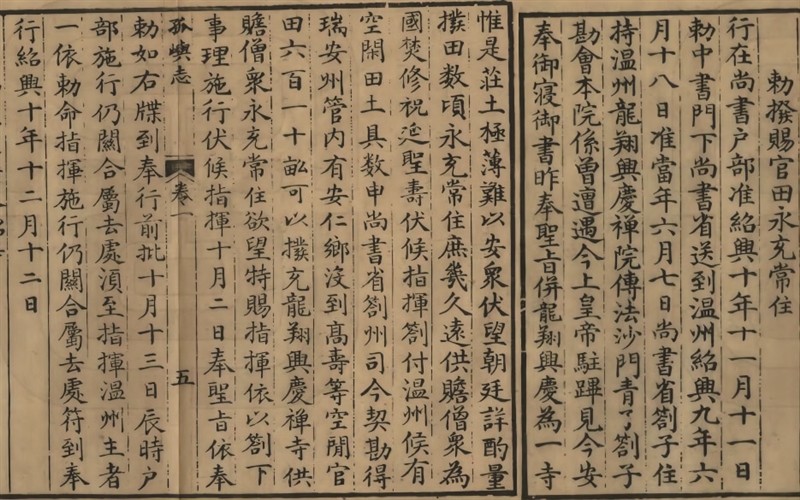 勅撥賜官田永充常住
行在尚書户部准紹興十年十一月十一日
勅中書門下尚書省送到温州紹興九年六
月十八日准當年六月七日尚書省劄子住
持温州龍翔興慶禅院傳法沙門青了劄子
勘會本院係曾遭遇今上皇帝駐蹕見今安
奉御寝御書昨奉聖旨併龍翔興慶為一寺
惟是莊土極薄難以安衆伏望朝廷詳酌量
撥田数頃永充常住庶幾久遠供贍僧衆為
國焚修祝延聖壽伏候指揮劄付温州俟有
空閑田土具数申尚書省劄州司今契勘得
瑞安州管内有安仁鄉沒到髙壽等空閒官
田六百一十畝可以撥充龍翔興慶禅寺供
贍僧衆永充常住欲望特賜指揮依以劄下
事理施行伏候指揮十月二日奉聖旨依奉
孤嶼志 卷一 五
勅如右牒到奉行前批十月十三日辰時户
部施行仍關合屬去處湏至指揮温州主者
一依勅命指揮施行仍關合屬去處符到奉
行紹興十年十二月十二日